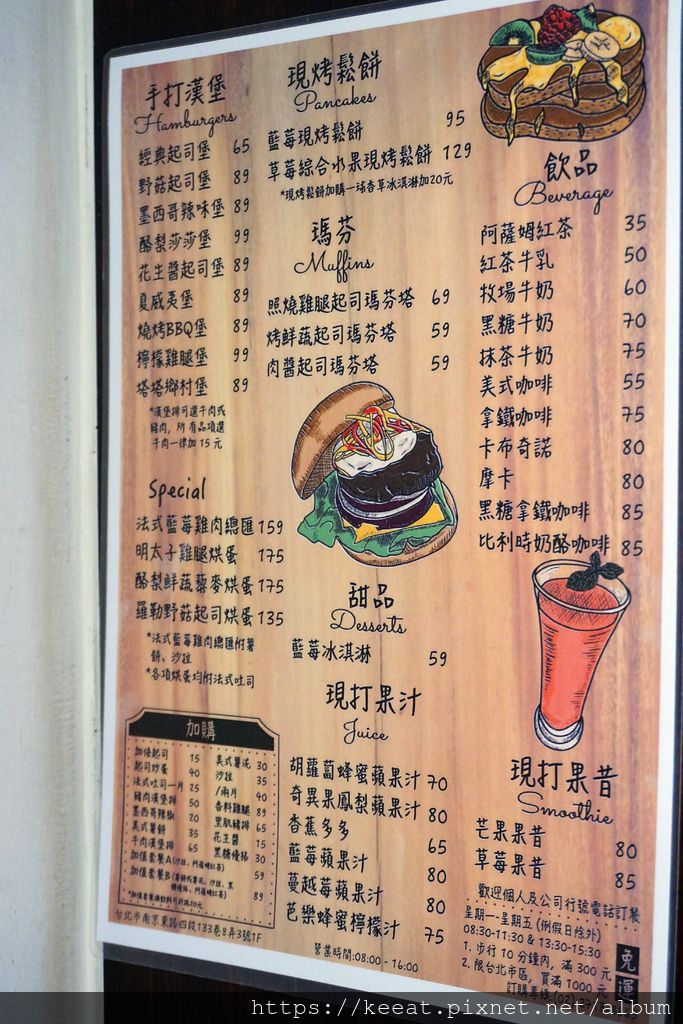 手打漢堡
Hamburgers
經典起司堡 65
野菇起司堡 89
墨西哥辣味堡 89
酪梨莎莎堡 99
花生醬起司堡 89
夏威夷堡 89
燒烤BBQ堡 89
檸檬雞腿堡 99
塔塔鄉村堡 89
*漢堡排可選牛肉或
豬肉,所有品項選
牛肉一律加15元
Special
法式藍莓雞肉總匯 159
明太子雞腿烘蛋 175
酪梨鮮蔬藜麥烘蛋 175
羅勒野菇起司烘蛋 135
*法式藍莓雞肉總匯附薯
餅、沙拉
*各項烘蛋均附法式吐司
加購
加倍起司 15
起司炒蛋 40
法式吐司一片 25
豬肉漢堡排 50
墨西哥辣椒 20
美式薯餅 35
牛肉漢堡排 65
美式薯泥 30
沙拉 35
/兩片 40
香料雞腿 89
里肌豬排 65
花生醬 15
黑糖優格 30
加值套餐A(沙拉、阿薩姆紅茶) 59
加值套餐B 89
台北市南京東路四段133巷8弄3號1F
現烤鬆餅
Pancakes
藍莓現烤鬆餅 95
草莓綜合水果現烤鬆餅 129
*現烤鬆餅加購一球香草冰淇淋加20元
瑪芬
Muffins
照燒雞腿起司瑪芬塔 69
烤鮮蔬起司瑪芬塔 59
肉醬起司瑪芬塔 59
甜品
Desserts
藍莓冰淇淋 59
現打果汁
Juice
胡蘿蔔蜂蜜蘋果汁 70
奇異果鳳梨蘋果汁 80
香蕉多多 65
藍莓蘋果汁 80
蔓越莓蘋果汁 80
芭樂蜂蜜檸檬汁 75
營業時間:08:00 - 16:00
飲品
Beverage
阿薩姆紅茶 35
紅茶牛乳 50
牧場牛奶 60
黑糖牛奶 70
抹茶牛奶 75
美式咖啡 55
拿鐵咖啡 75
卡布奇諾 80
摩卡 80
黑糖拿鐵咖啡 85
比利時奶酪咖啡 85
現打果昔
Smoothie
芒果果昔 80
草莓果昔 85
歡迎個人及公司行號電話訂餐
星期一-星期五 (例假日除外)
08:30-11:30 & 13:30-15:30
1. 步行10分鐘內,滿300元
2. 限台北市區,買滿1000元
免運
訂購專線:(02)
https://keeat.pixnet.net/album